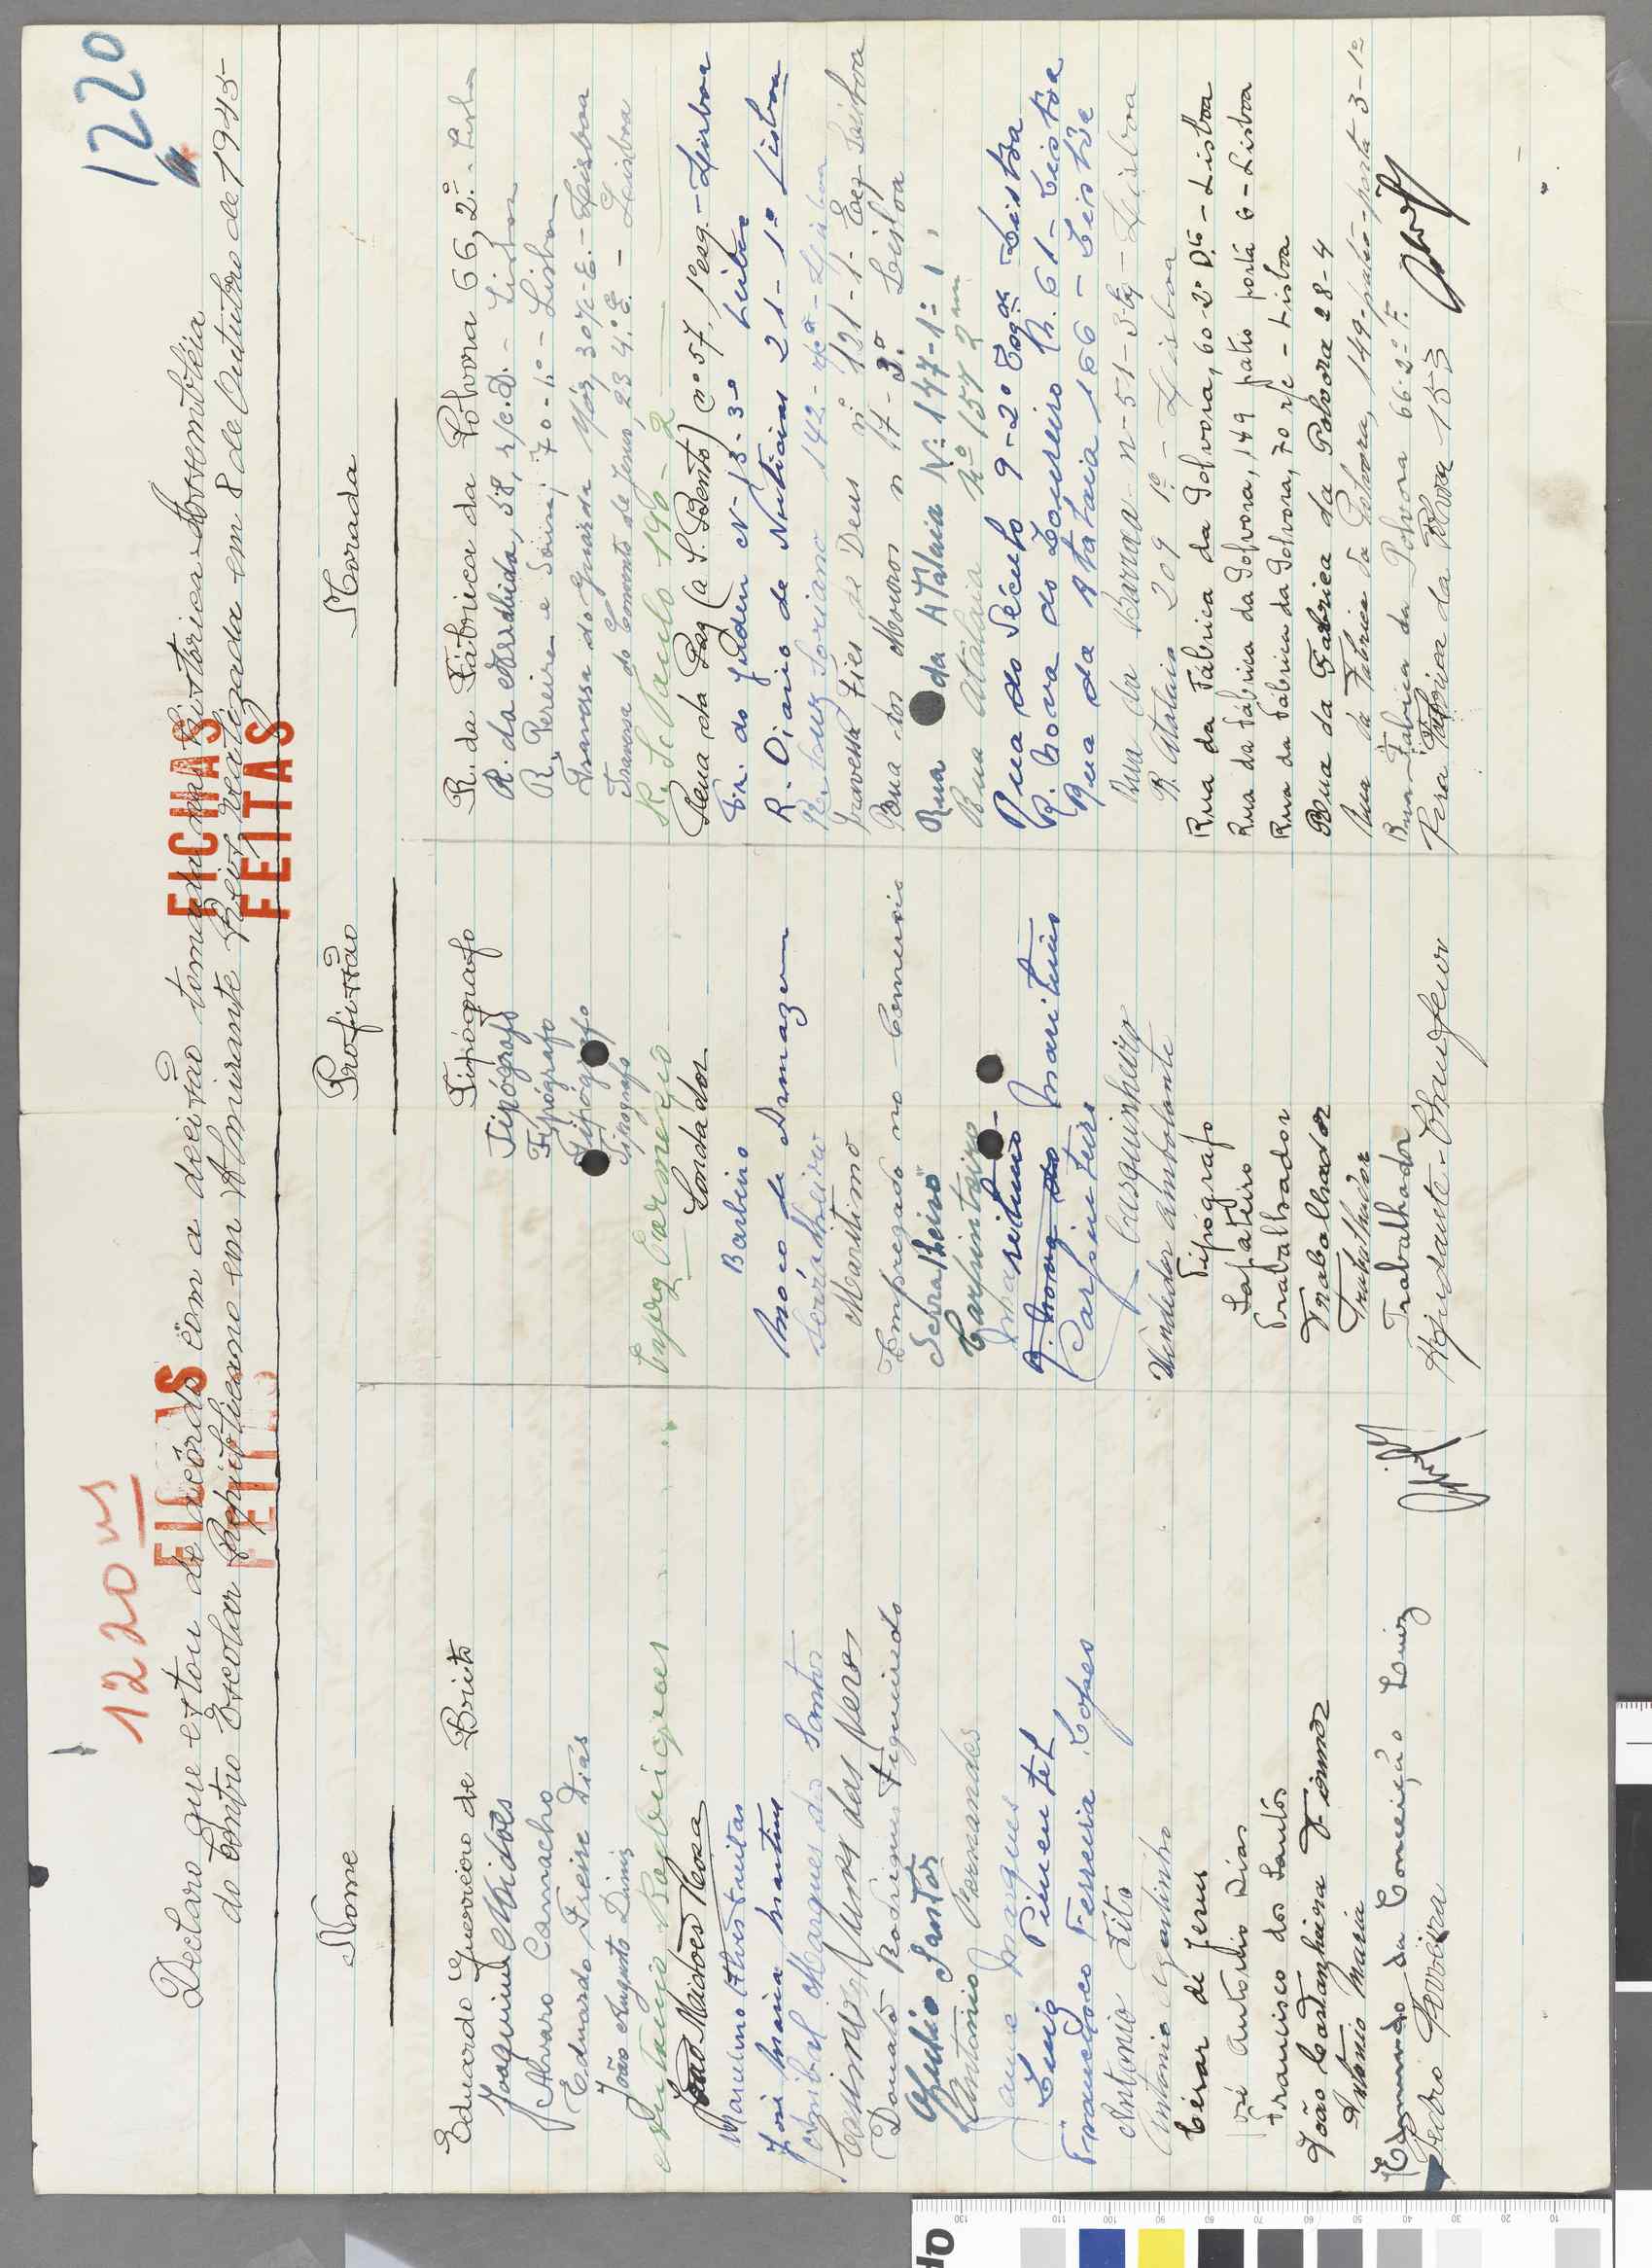 1220
1220 vs
FICHAS
FEITAS
FICHAS
FEITAS
Declaro que estou de acôrdo com a decisão tomada na histórica Assembleia
do Centro Escolar Republicano em Almirante Reis, realizada em 8 de Outubro de 1945
Nome Profissão Morada
Eduardo Guerreiro de Brito Tipógrafo R. da Fábrica da Pólvora 66, 2º - Lisboa
Joaquim Tipógrafo R. da Arrábida, 58, r/c. D. - Lisboa
Alvaro Camacho Tipógrafo R. Pereira e Sousa, 70-1º - Lisboa
Eduardo Freire Dias Tipógrafo Travessa do Guarda Mór, 30 r/c-E. - Lisboa
João Augusto Diniz Tipografo Travessa do Convento de Jesus, 23 4º E. - Lisboa
Rodrigues Empreg. Comércio R. S. Paulo 190-2
João Maidoes Rosa Rua da Paz (a S. Bento) nº 57, 1º esq. - Lisboa
Marcelino Alves Barbeiro Tr. do Judeu Nº 13-3º Lisboa
José Maria Martins Moço de Armazem R. Diario de Noticias 21-1º Lisboa
Anibal Marques dos Santos Serralheiro R. Luz Soriano 142 - Lisboa
Casimiro Nunes das Neves Maritimo Travessa Fieis de Deus nº 121-1º Esq. Lisboa
Donato Rodrigues Figueiredo Empregado no Comercio Rua dos Mouros n 17-3º Lisboa
Santos Serralheiro Rua da Atalaia Nº 147-1º
Antonio Fernandes Carpinteiro Rua Atalaia nº 157
Jaime Marques Maritimo Rua do Século 9-2º Esq. Lisboa
Luiz Pimentel Maritimo R. Nova do Loureiro 61 - Lisboa
Francisco Ferreira Lopes Carpinteiro Rua da Atalaia 166 - Lisboa
Antonio Tito Casquinheiro Rua da Barroca n-51-3 - Lisboa
Antonio Agostinho Vendedor ambolante R. Atalaia 209 1º - Lisboa
César de Jesus Tipógrafo Rua da Fábrica da Polvora, 60-2º Dto - Lisboa
José António Dias Sapateiro Rua da Fábrica da Polvora, 149 patio porta 6 - Lisboa
Francisco dos Santos Trabalhador Rua da Fábrica da Polvora, 70 r/c - Lisboa
João Castanheira Trabalhador Rua da Fabrica da Polvora 28-4
Antonio Maria Trabalhador Rua da Fabrica da Polvora, 149-patio-porta 3-1º
da Conceição Luiz Trabalhador Rua Fabrica da Polvora 66-2º F.
Pedro Ajudante-Chaufeur Rua Fábrica da Polvora 153